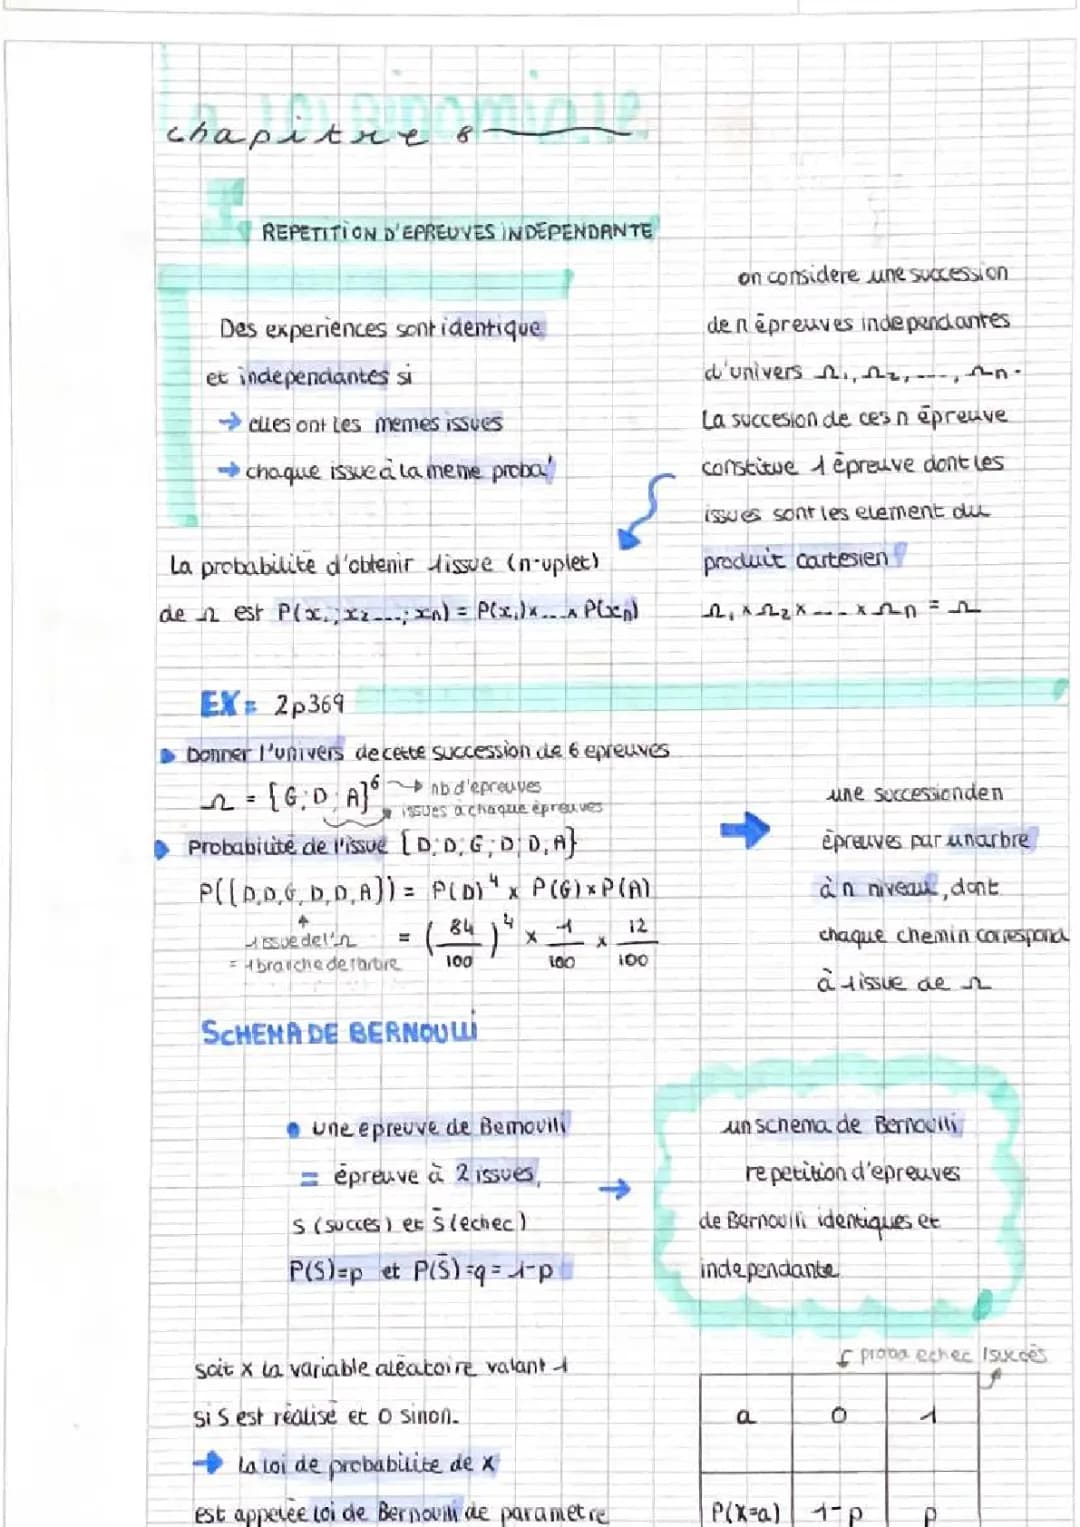 chapitre 8
I.
REPETITION D'EPREUVES INDEPENDANTE
Des experiences sont identique
et independantes si
→ elles ont les memes issues
→ chaque issue à la meme proba
on considere une succession
de n épreuves independantes
d'univers Ω₁, Ω₂, ---, Ωn.
La succesion de ces n épreuve
constitue 1 épreuve dont les
issues sont les element du
produit cartesien
Ω₁ x Ω₂ x --- x Ωn = Ω
La probabilité d'obtenir 1issue (n-uplet)
de Ω est P(x₁; x₂ ---; xn) = P(x₁)x...x P(xn)
EX = 2p369
Donner l'univers de cette succession de 6 epreuves
Ω = {G; D; A}⁶ → nb d'epreuves
issues à chaque épreuves
Probabilité de l'issue {D; D; G; D; D, A}
P({D,D,G,D,D,A}) = P(D)⁴ x P(G) x P(A)
↑
1 issue de l'Ω
= 1 branche de l'arbre
= (84/100)⁴ x 1/100 x 12/100
→ une succession de n
épreuves par un arbre
à n niveau, dont
chaque chemin correspond
à 1issue de Ω
SCHEMA DE BERNOULLI
• une epreuve de Bernouili
= épreuve à 2 issues,
S (succes) et S̄ (echec)
P(S)=p et P(S̄)=q = 1-p
→
un schema de Bernouili
repetition d'epreuves
de Bernouili identiques et
independante
soit x la variable aléatoire valant 1
si S est réalisé et 0 sinon.
→ la loi de probabilite de x
est appelée loi de Bernouili de parametre
proba echec /succès
a 0 1
P(X=a) 1-p p